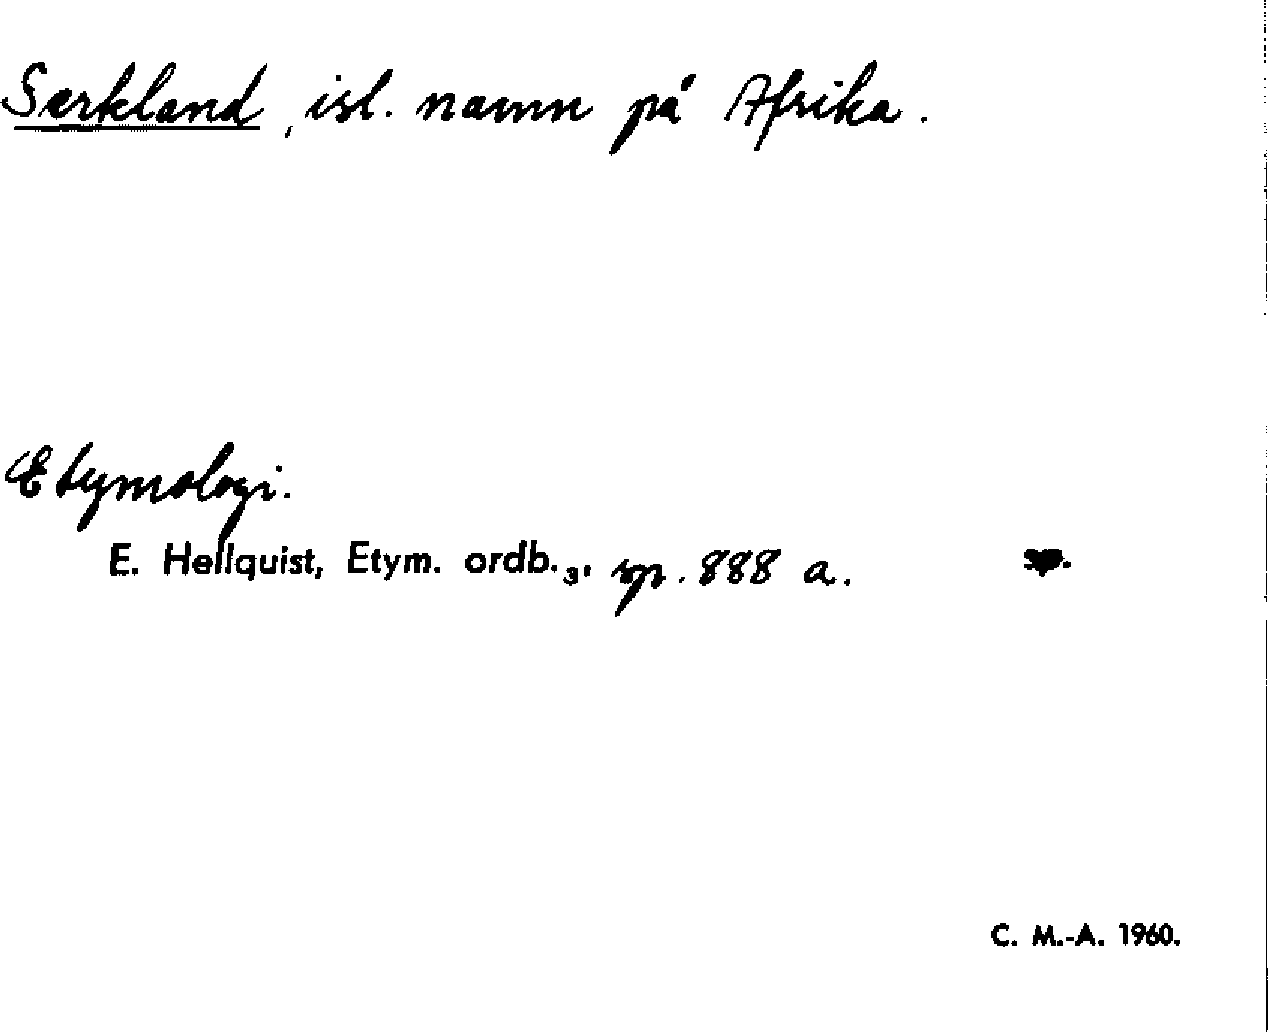 Serkland, isl. namn på Afrika.
Etymologi.
E. Hellquist, Etym. ordb.₃, sp. 888 a.
C. M.-A. 1960.